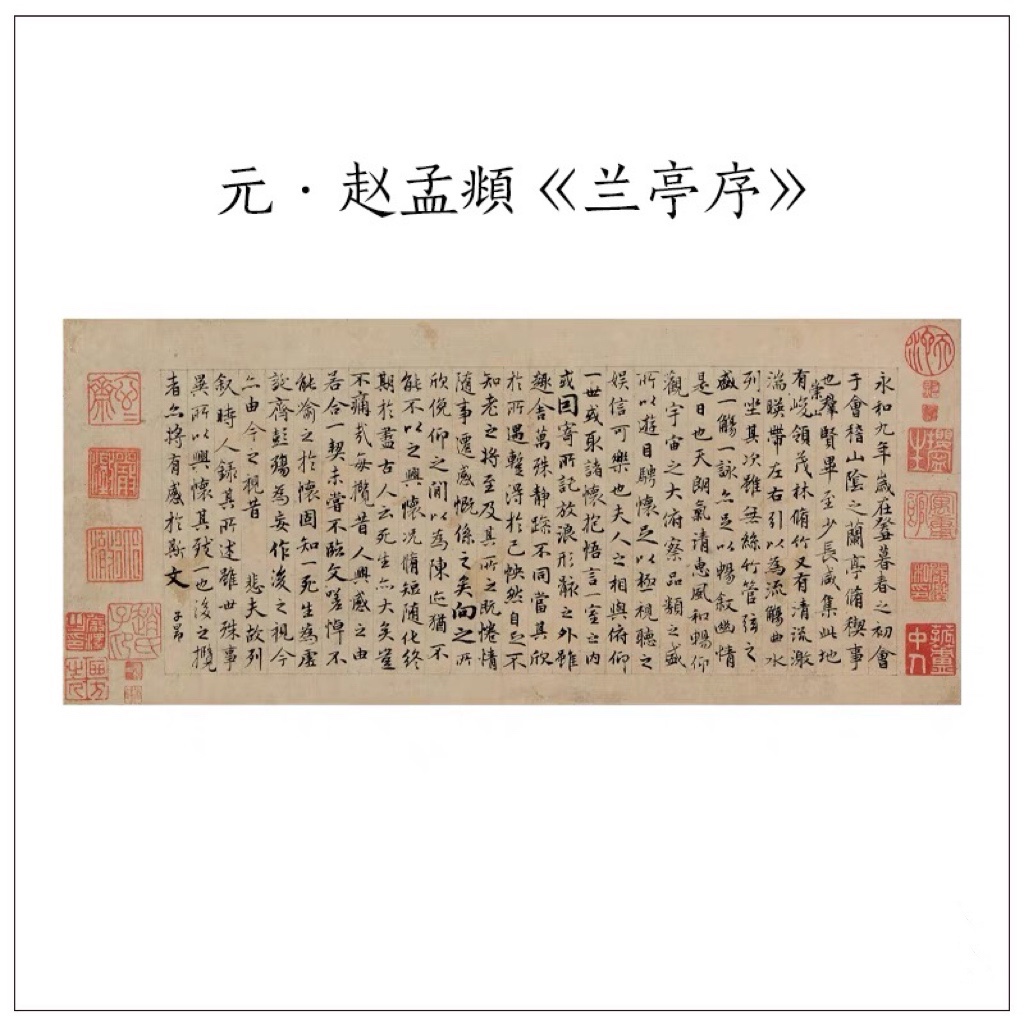 元·赵孟頫《兰亭序》
永和九年歲在癸暮春之初會
于會稽山陰之蘭亭脩禊事
也羣賢畢至少長咸集此地
有崇峻領茂林脩竹又有清流激
湍暎帶左右引以為流觴曲水
列坐其次雖無絲竹管弦之
盛一觴一詠亦足以暢叙幽情
是日也天朗氣清惠風和暢仰
觀宇宙之大俯察品類之盛
所以遊目騁懷足以極視聽之
娛信可樂也夫人之相與俯仰
一世或取諸懷抱悟言一室之內
或因寄所託放浪形骸之外雖
趣舍萬殊靜躁不同當其欣
於所遇蹔得於己怏然自足不
知老之將至及其所之既惓情
隨事遷感慨係之矣向之所
欣俛仰之閒以為陳迹猶不
能不以之興懷況脩短隨化終
期於盡古人云死生亦大矣豈
不痛哉每攬昔人興感之由
若合一契未嘗不臨文嗟悼不
能喻之於懷固知一死生為虛
誕齊彭殤為妄作後之視今
亦由今之視昔 悲夫故列
叙時人錄其所述雖世殊事
異所以興懷其致一也後之攬
者亦將有感於斯文
子昂